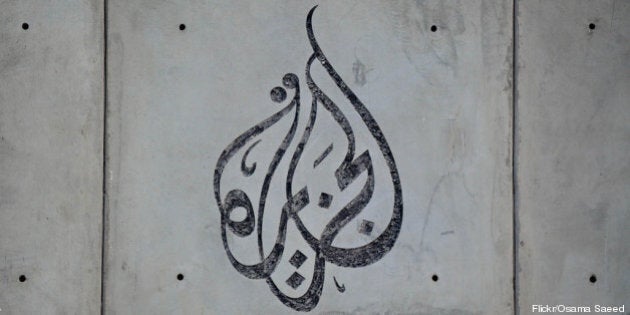 الجزيرة
Flickr/Osama Saeed